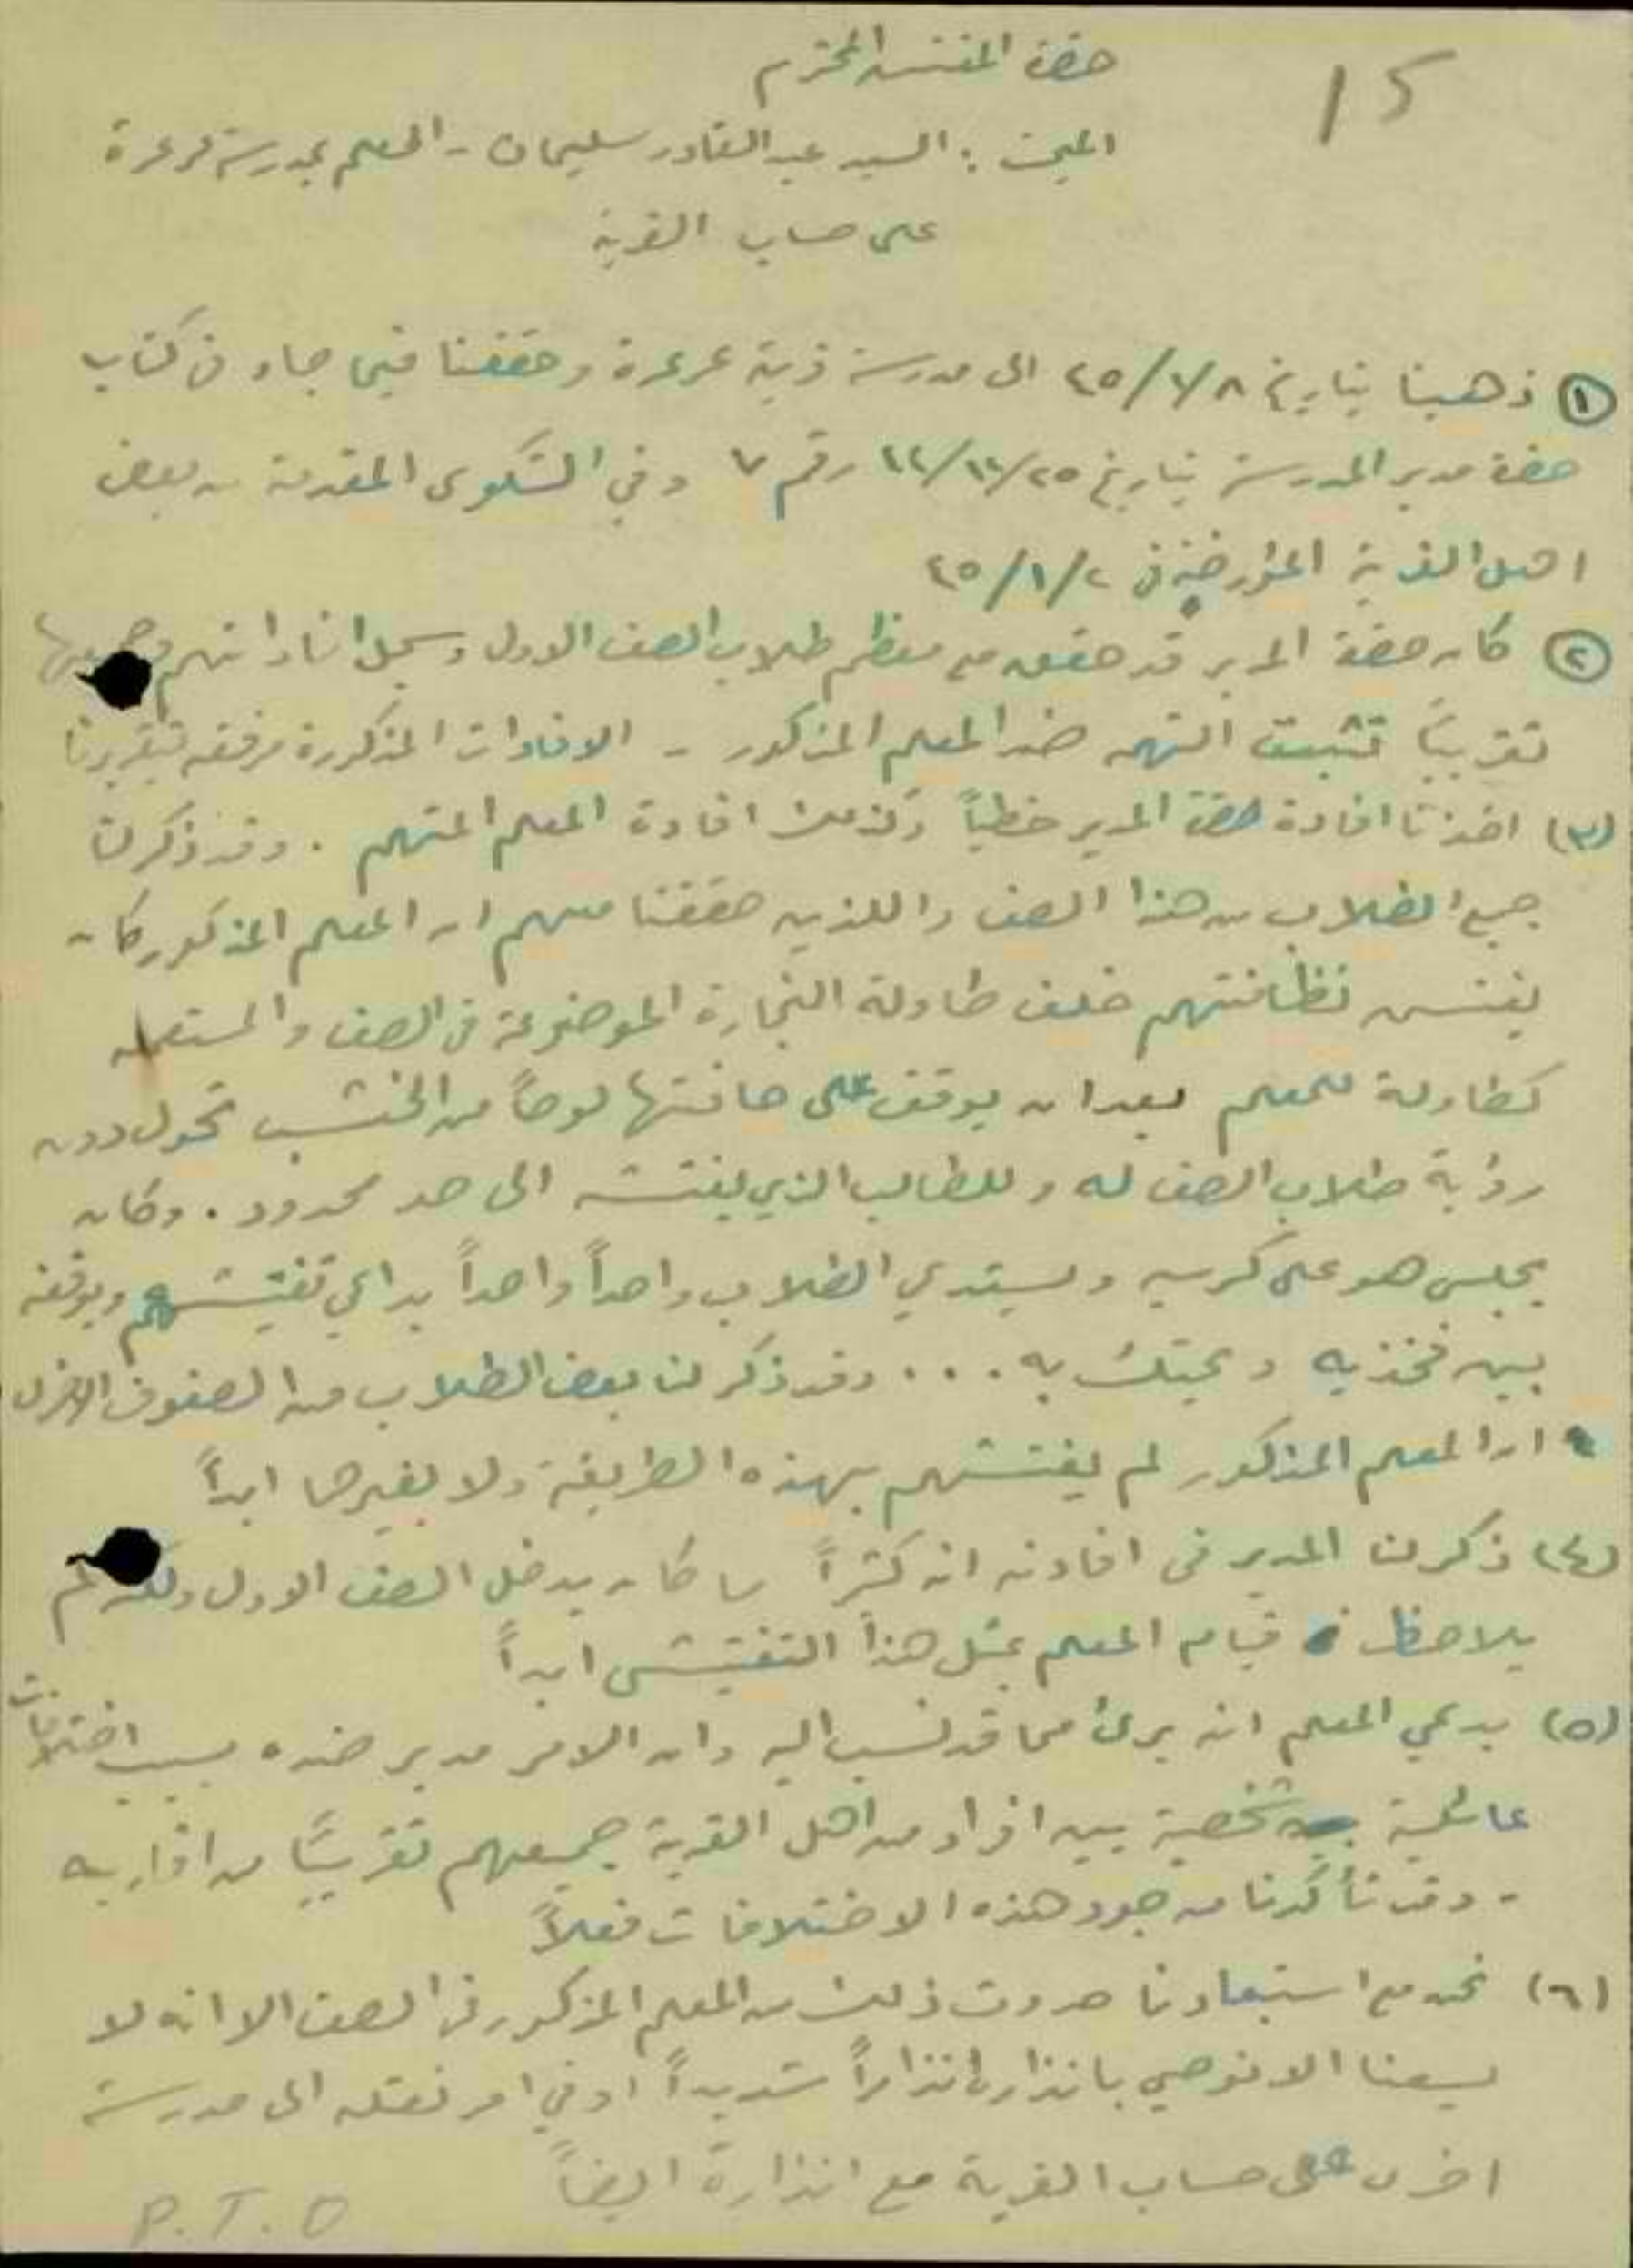 ١٥
حضرة المفتش المحترم
المبحث : السيد عبد القادر سليمان - المعلم بمدرسة عرعرة
على حساب القرية
① ذهبنا بتاريخ ٤٥/١/٨ الى مدرسة قرية عرعرة وحققنا فيما جاء في كتاب
حضرة مدير المدرسة بتاريخ ٤٤/١٢/٢٥ رقم ٧ وفي الشكوى المقدمة من بعض
اهل القرية المؤرخة في ٤٥/١/٢
② كان حضرة المدير قد حقق مع معظم طلاب الصف الاول وسجل افاداتهم وجميعها
تقريباً تثبت التهم ضد المعلم المذكور - الافادات المذكورة مرفقه بتقريرنا
(٣) اخذنا افادة حضرة المدير خطياً وكذلك افادة المعلم المتهم . وقد ذكر لنا
جميع الطلاب من هذا الصف واللذين حققنا معهم ان المعلم المذكور كان
يفتش نظافتهم خلف طاولة النجارة الموضوعة في الصف والمستعمله
كطاولة للمعلم بعد ان يوقف على حافتها لوحاً من الخشب تحول دون
رؤية طلاب الصف له وللطالب الذي يفتشه الى حد محدود . وكان
يجلس هو على كرسيه ويستدعي الطلاب واحداً واحداً بداعي تفتيشهم ويوقفه
بين فخذيه ويحتك به . . . . وقد ذكر لنا بعض الطلاب من الصفوف الاخرى
ان المعلم المذكور لم يفتشهم بهذه الطريقة ولا بغيرها ابداً
(٤) ذكر لنا المدير في افادته انه كثيراً ما كان يدخل الصف الاول ولكنه لم
يلاحظ قيام المعلم بمثل هذا التفتيش ابداً
(٥) يدعي المعلم انه برئ مما قد نسب اليه وان الامر مدبر ضده بسبب اختلافات
عائلية شخصية بين افراد من اهل القرية جميعهم تقريباً من اقاربه
- وقد تأكدنا من وجود هذه الاختلافات فعلاً
(٦) نحن مع استبعادنا حدوث ذلك من المعلم المذكور في الصف الا انه لا
يسعنا الا نوصي بانذاره انذاراً شديداً او في امر نقله الى مدرسة
اخرى على حساب القرية مع انذاره ايضاً
P.T.O